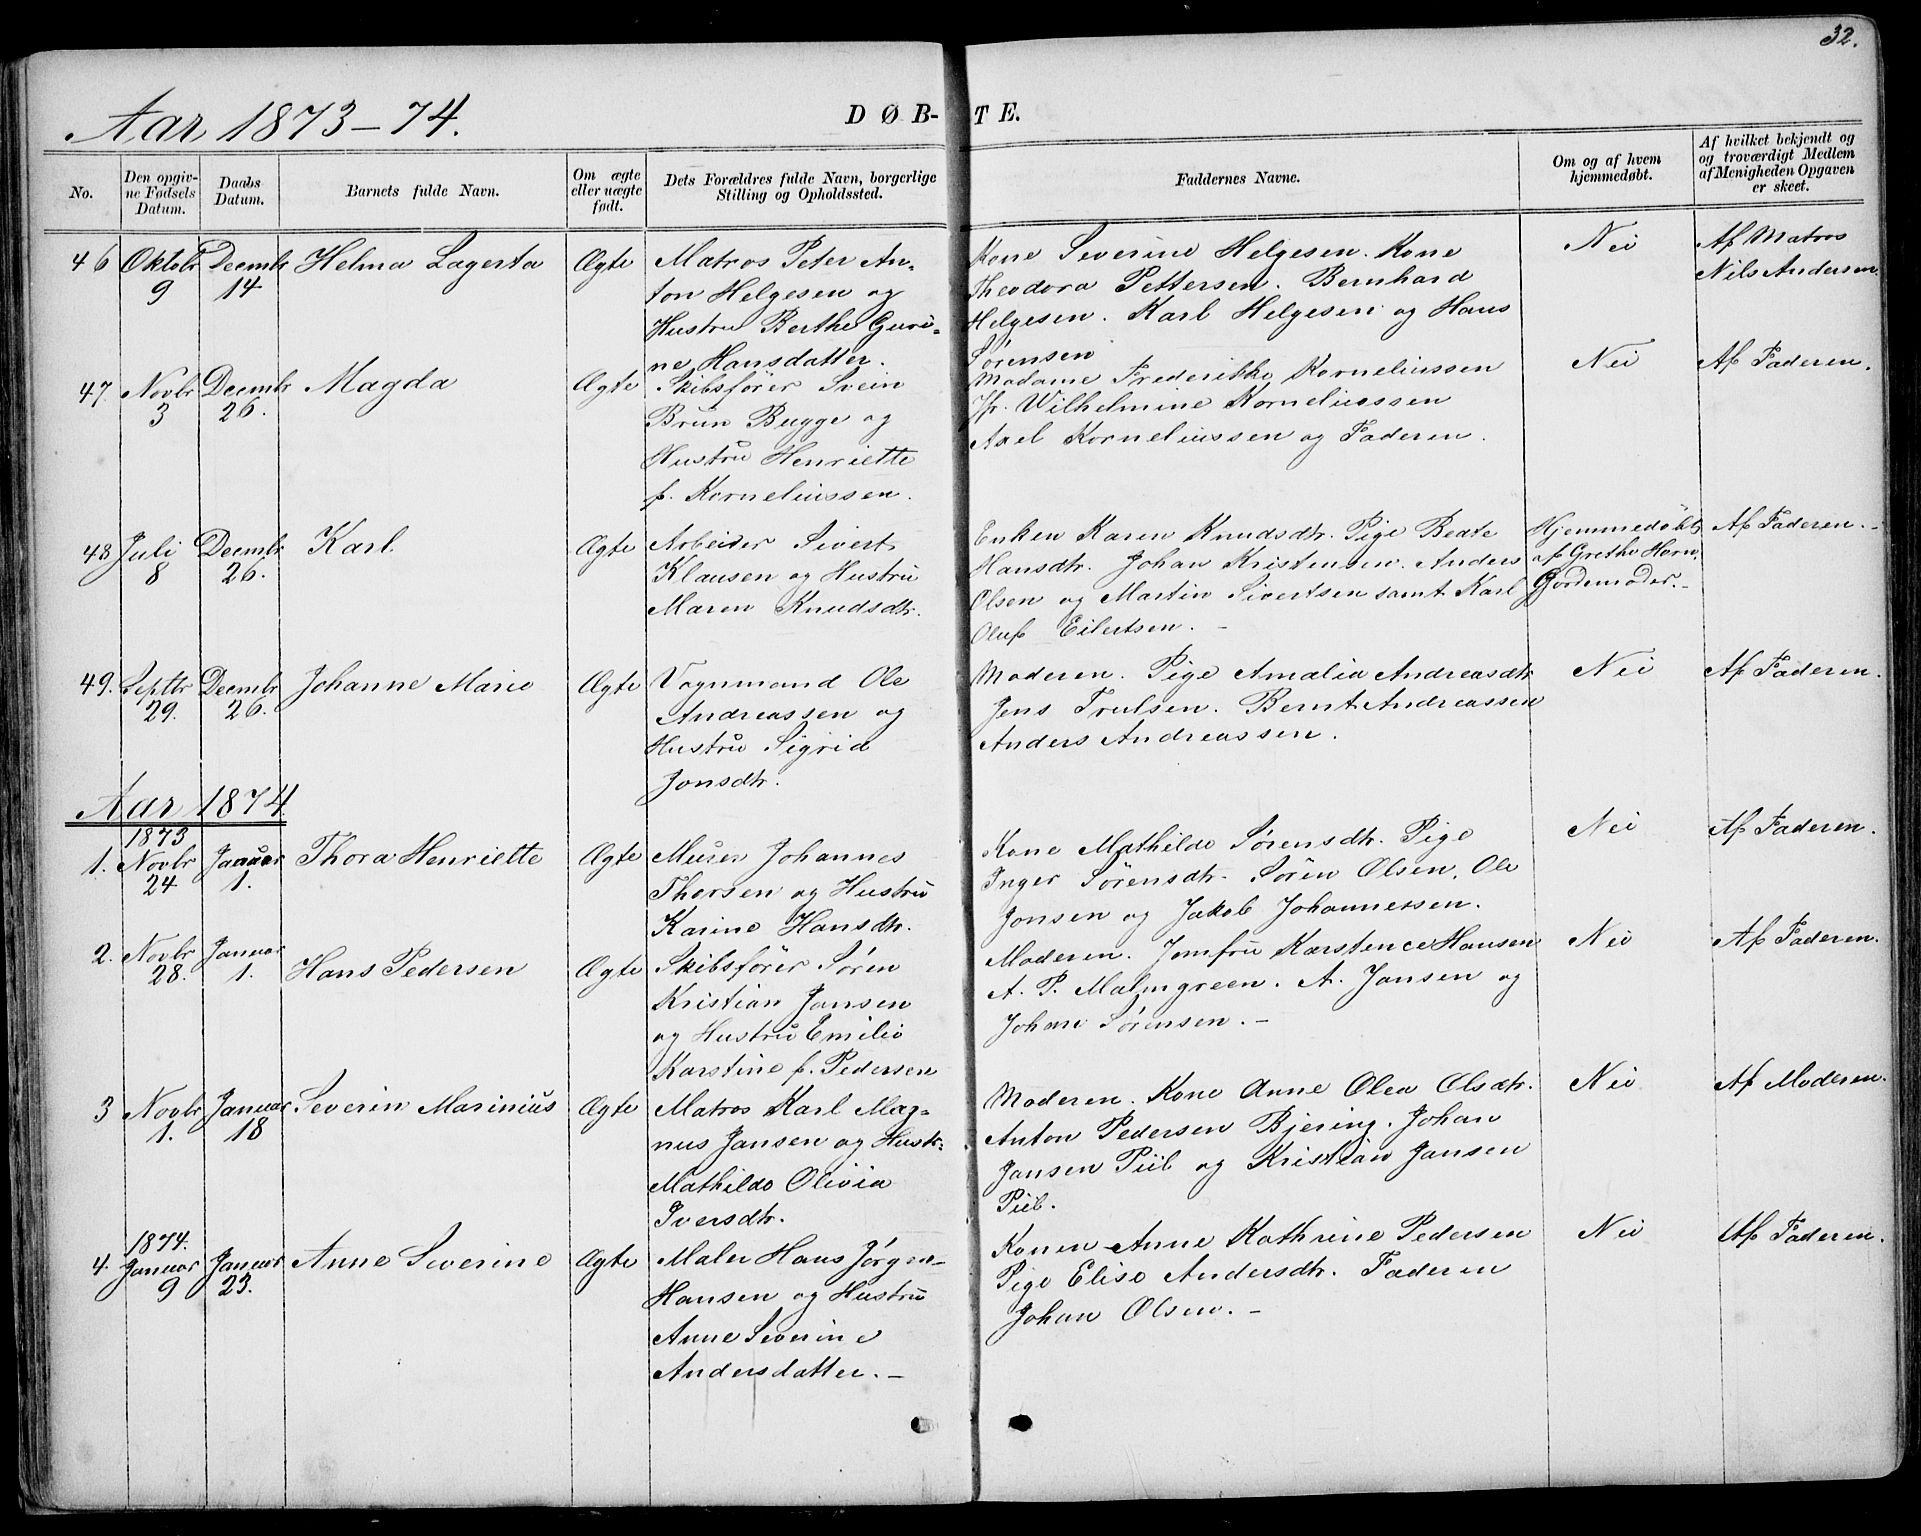 32.
Aar 1873-74.
DØB-TE.
No.
Den opgivne Fødsels Datum.
Daabs Datum.
Barnets fulde Navn.
Om ægte eller uægte født.
Dets Forældres fulde Navn, borgerlige Stilling og Opholdssted.
Faddernes Navne.
Om og af hvem hjemmedøbt.
Af hvilket bekjendt og og troværdigt Medlem af Menigheden Opgaven er skeet.
46 Oktobr 9 Decmbr 14 Helma Lagerta Ægte
Matros Peter An-
ton Helgesen og
Hustru Berthe Guri-
ne Hansdatter.
Kone Severine Helgesen. Kone
Theodora Pettersen. Bernhard
Helgesen. Karl Helgesen og Hans
Sörensen
Nei
Af Matros
Nils Andersen.
47. Novbr 3 Decmbr 26. Magda Ægte
Skibsförer Svein
Brun Bugge og
Hustru Henriette
f. Korneliussen.
Madame Frederikke Korneliussen
Jfr. Wilhelmine Korneliussen
Axel Korneliussen og Faderen.
Nei
Af Faderen.
48 Juli 8 Decmbr 26. Karl Ægte
Arbeider Sivert
Klausen og Hustru
Maren Knudsdtr.
Enken Karen Knudsdtr. Pige Beate
Hansdtr. Johan Kristensen. Anders
Olsen og Martin Sivertsen samt Karl
Oluf Eilertsen. -
Hjemmedøbt
af Grethe Horn,
Gjordemoder. -
Af Faderen. -
49. Septbr 29. Decmbr 26. Johanne Marie Ægte
Vognmand Ole
Andreassen og
Hustru Sigrid
Jonsdtr.
Moderen. Pige Amalia Andreasdtr
Jens Trulsen. Bernt Andreassen
Anders Andreassen.
Nei
Af Faderen.
Aar 1874
1873
1. Novbr 24 Januar 1. Thora Henriette Ægte
Murer Johannes
Thorsen og Hustru
Karine Hansdtr.
Kone Mathilde Sørensdtr. Pige
Inger Sörensdtr. Sören Olsen, Ole
Jonsen og Jakob Johannessen.
Nei
Af Faderen.
2. Novbr 28. Januar 1. Hans Pedersen Ægte
Skibsförer Sören
Kristian Jansen
og Hustru Emilie
Karstine f. Pedersen
Moderen. Jomfru Karstence Hansen
A. P. Malmgreen. A. Jansen og
Johan Sörensen. -
Nei
Af Faderen.
3 Novbr 1. Januar 18 Severin Marinius Ægte
Matros Karl Mag-
nus Jansen og Hustr.
Mathilde Olivia
Iversdtr.
Moderen. Kone Anne Olea Olsdtr.
Anton Pedersen Bjering. Johan
Jansen Piil og Kristian Jansen
Piil.
Nei
Af Moderen.
1874.
4. Januar 9 Januar 23. Anne Severine Ægte
Maler Hans Jørgen
Hansen og Hustru
Anne Severine
Andersdatter. -
Konen Anne Kathrine Pedersen
Pige Elise Andersdtr. Faderen
Johan Olsen. -
Nei
Af Faderen.